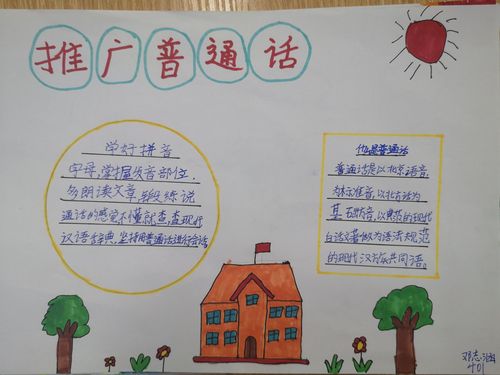 推广普通话
学好拼音
字母,掌握发音部位.
多朗读文章,
通话的感觉不懂就查,查现代
汉语辞典,坚持用普通话进行会话
什么是普通话
普通话是以北京语音
为标准音,以北方话为
基 以典范的现代
白话文著做为语法规范
的现代汉 共同语。
邓志涵
401